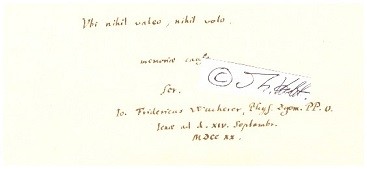 Ubi nihil valeo, nihil volo.
memoriae
scr.
Io. Fridericus Wucherer, Phys. P. P. O.
Ienae ad d. XIV. Septembr.
MDCCXX.